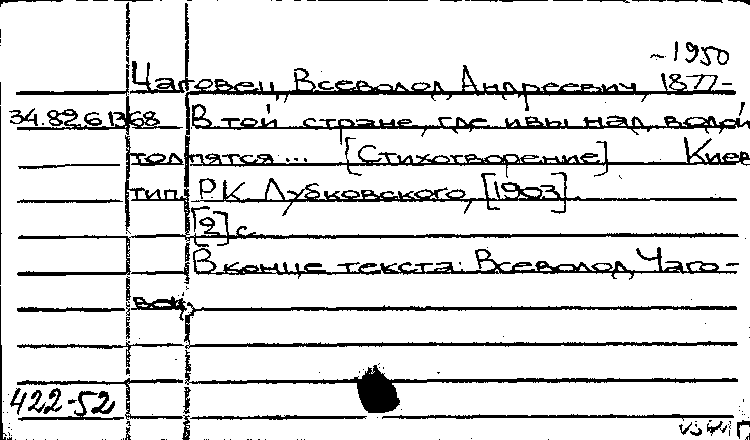 -1950
Чаговец, Всеволод Андреевич, 1877-
34.82.61368 В той стране, где ивы над водой
толпятся... [Стихотворение] Киев
тип. РК Лубковского, [1903].
[2] с.
В конце текста: Всеволод Чаго-
вец
422-52